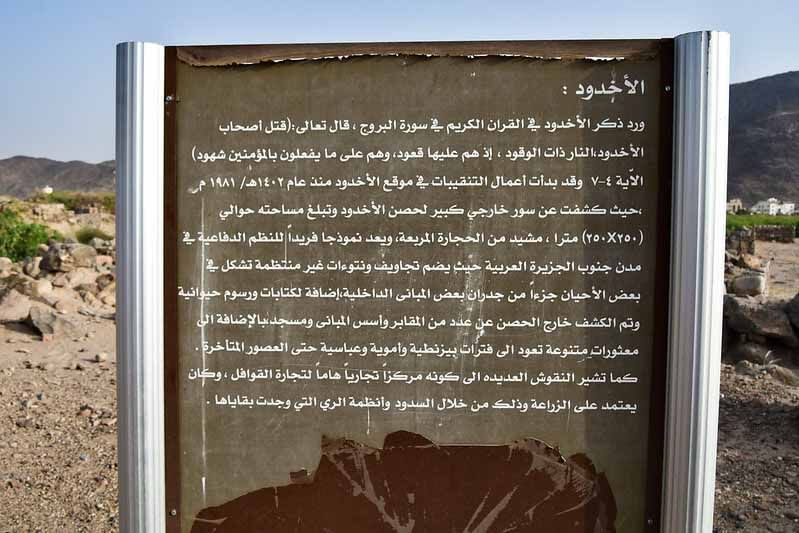 الأخدود :
ورد ذكر الأخدود في القران الكريم في سورة البروج ، قال تعالى:(قتل أصحاب
الأخدود،النار ذات الوقود ، إذ هم عليها قعود، وهم على ما يفعلون بالمؤمنين شهود)
الآية ٤-٧ وقد بدأت أعمال التنقيبات في موقع الأخدود منذ عام ١٤٠٢هـ/ ١٩٨١ م
،حيث كشفت عن سور خارجي كبير لحصن الأخدود وتبلغ مساحته حوالي
(٢٥٠X٢٥٠) مترا ، مشيد من الحجارة المربعة، ويعد نموذجا فريداً للنظم الدفاعية في
مدن جنوب الجزيرة العربية حيث يضم تجاويف ونتوءات غير منتظمة تشكل في
بعض الأحيان جزءاً من جدران بعض المبانى الداخلية،إضافة لكتابات ورسوم حيوانية
وتم الكشف خارج الحصن عن عدد من المقابر وأسس المبانى ومسجد،بالإضافة الى
معثورات متنوعة تعود الى فترات بيزنطية وأموية وعباسية حتى العصور المتأخرة .
كما تشير النقوش العديده الى كونه مركزاً تجارياً هاماً لتجارة القوافل ، وكان
يعتمد على الزراعة وذلك من خلال السدود وأنظمة الري التي وجدت بقاياها .